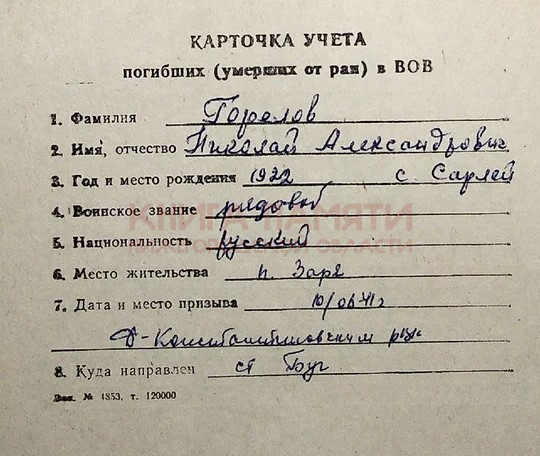 КАРТОЧКА УЧЕТА
погибших (умерших от ран) в ВОВ
1. Фамилия Горелов
2. Имя, отчество Николай Александрович
3. Год и место рождения 1922 с. Сарлей
4. Воинское звание рядовой
КНИГА ПАМЯТИ
5. Национальность русский
НИЖЕГОРОДСКОЙ ОБЛАСТИ
6. Место жительства п. Заря
7. Дата и место призыва 10/06-41г
Д-Константиновским рвк
8. Куда направлен ст Буг
Зак. № 4853, т. 120000